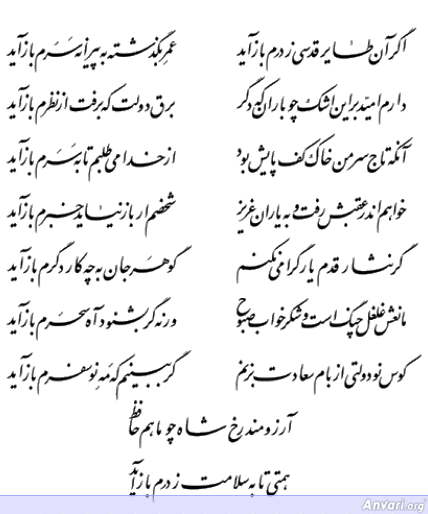 اگر آن طایر قدسی ز درم بازآید عمر بگذشته به پیرانه سرم بازآید
دارم امید بر این اشک چو باران که دگر برق دولت که برفت از نظرم بازآید
آنکه تاج سر من خاک کف پایش بود از خدا می طلبم تا به سرم بازآید
خواهم اندر عقبش رفت و به یاران عزیز شخصم ار بازنیاید خبرم بازآید
گر نثار قدم یار گرامی نکنم گوهر جان به چه کار دگرم بازآید
مانعش غلغل چنگ است و شکرخواب صبوح ورنه گر بشنود آه سحرم بازآید
کوس نودولتی از بام سعادت بزنم گر ببینم که مه نوسفرم بازآید
آرزومند رخ شاه چو ماهم حافظ
همتی تا به سلامت ز درم بازآید
Anvari.org